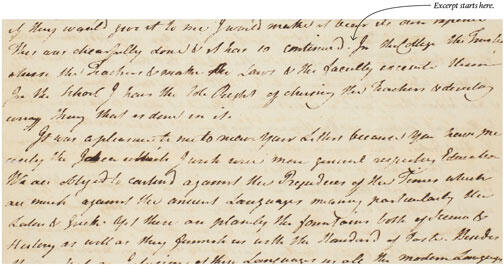 Excerpt starts here.
if they would give it to me I would make it bear its own expence
This was chearfully done & it has so continued. In the College the Trustees
chuse the Teachers & make the Laws & the faculty execute them
In the School I have the sole Right of chusing the Teachers & directing
every Thing that is done in it.
It was a pleasure to me to receive your Letters because you
the I wish were more general respecting Education
We are obliged to contend against the Prejudices of the Times which
are much against the ancient Languages meaning particularly the
Latin & Greek. Yet these are plainly the fountains both of Science &
History as well as they furnish us with the Standard of Taste. Besides
of these Languages is all the modern Languages